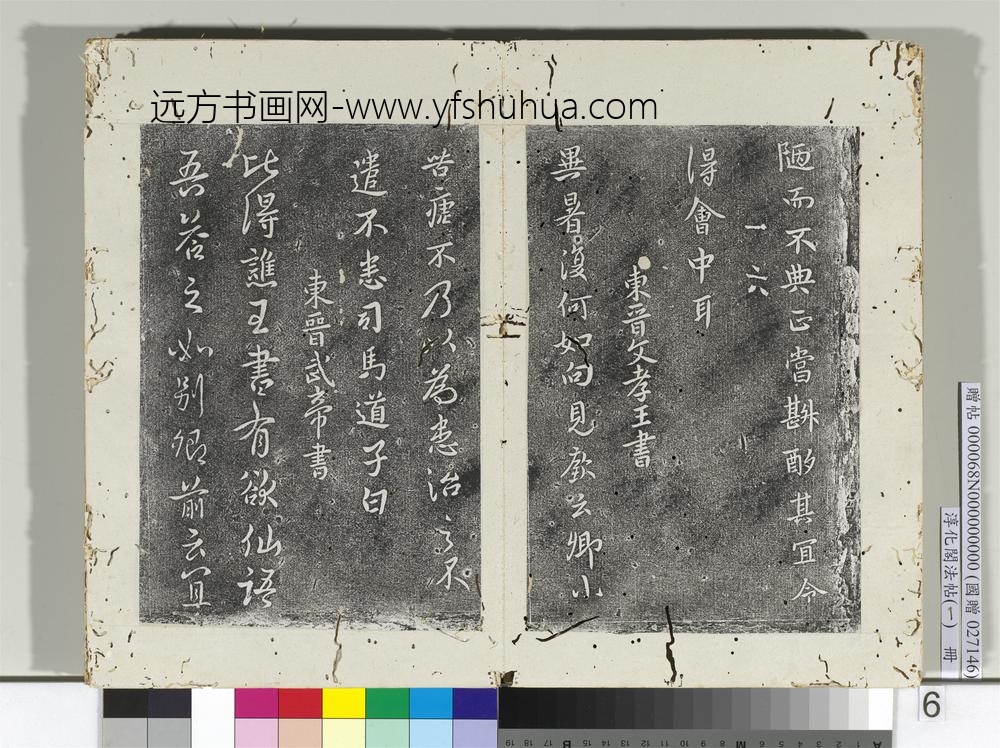 远方书画网-www.yfshuhua.com
陋而不典正當斟酌其宜令
一六
得會中耳
東晉文孝王書
異暑復何如向見歆云卿小
苦瘧不乃以為患治之不
遣不悉司馬道子白
東晉武帝書
比得譙王書有欲仙語
吾答之如别卿前云宜
贈帖 000068N000000000 (國贈 027146)
淳化閣法帖(一) 冊
6